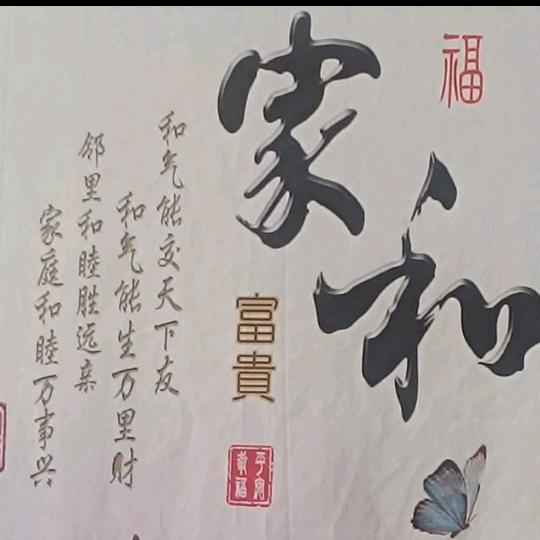 福
家和
富貴
平安
幸福
和气能交天下友
和气能生万里财
邻里和睦胜远亲
家庭和睦万事兴